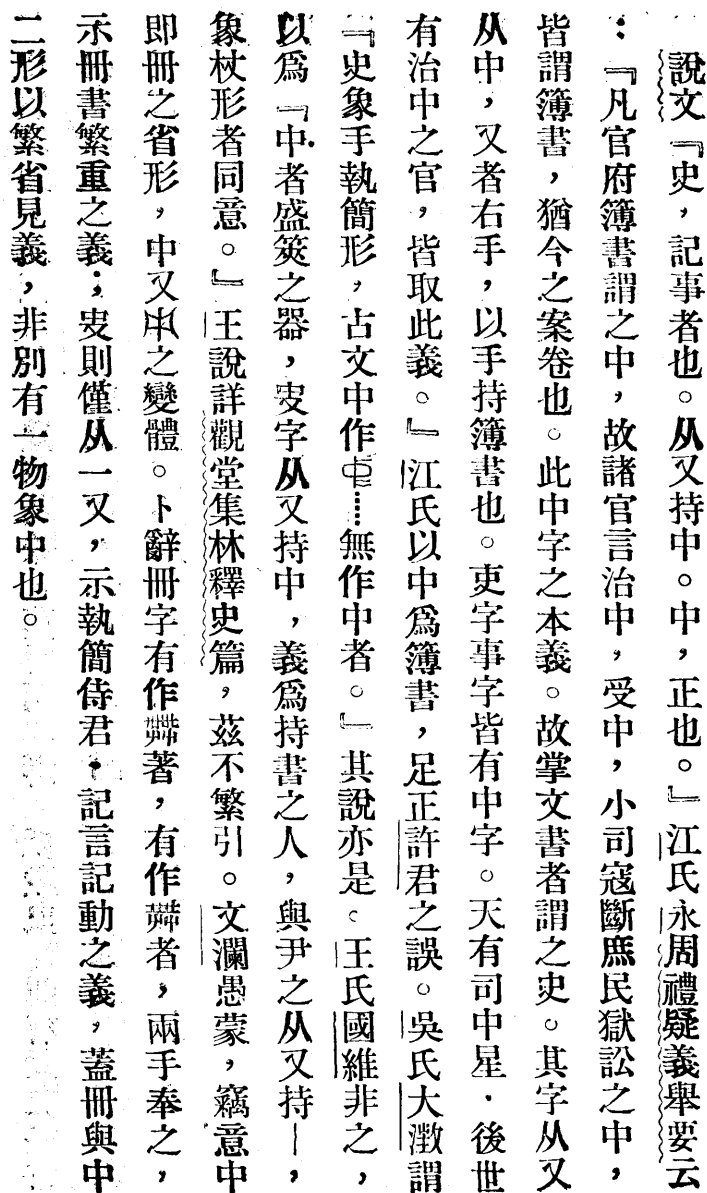 說文『史，記事者也。从又持中。中，正也。』江氏永周禮疑義舉要云
：『凡官府簿書謂之中，故諸官言治中，受中，小司寇斷庶民獄訟之中，
皆謂簿書，猶今之案卷也。此中字之本義。故掌文書者謂之史。其字从又
从中，又者右手，以手持簿書也。吏字事字皆有中字。天有司中星．後世
有治中之官，皆取此義。』江氏以中爲簿書，足正許君之誤。吳氏大澂謂
『史象手執簡形，古文中作……無作中者。』其說亦是。王氏國維非之，
以爲『中者盛筴之器，㕜字从又持中，義爲持書之人，與尹之从又持丨，
象杖形者同意。』王說詳觀堂集林釋史篇，茲不繁引。文瀾愚蒙，竊意中
即冊之省形，中又之變體。卜辭冊字有作著，有作者，兩手奉之，
示冊書繁重之義；㕜則僅从一又，示執簡侍君．記言記動之義，蓋冊與中
二形以繁省見義，非別有一物象中也。